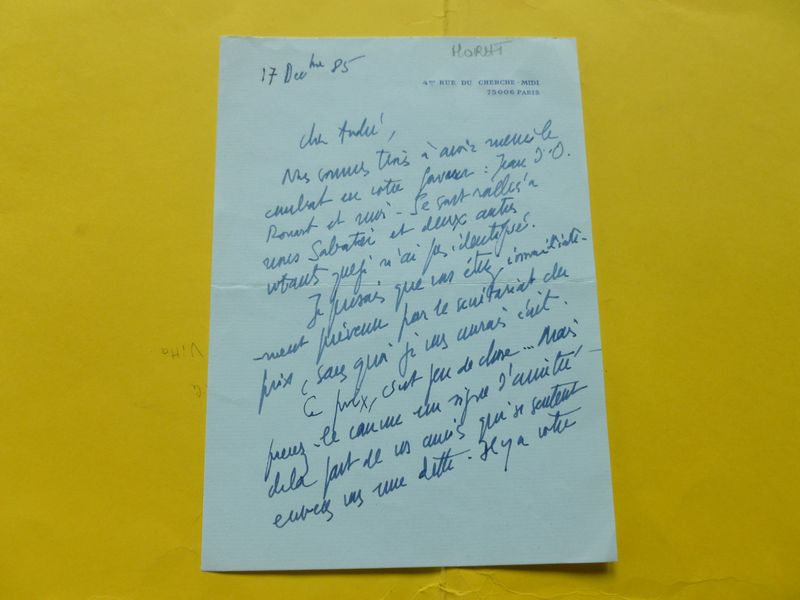 MOHRT
17 Décbre 85
4BIS RUE DU CHERCHE-MIDI
75006 PARIS
Cher André,
Nous sommes trois à avoir mené le
combat en votre faveur : Jean d'O.
Rouart et moi - Se sont ralliés à
nous Sabatier et deux autres
votants que je n'ai pas identifiés.
Je pensais que vous étiez immédiate-
-ment prévenu par le secrétariat du
prix, sans quoi je vous aurais écrit.
Ce prix, c'est peu de chose... Mais
prenez-le comme un signe d'amitié
de la part de vos amis qui se sentent
envers vous une dette - Il y a votre